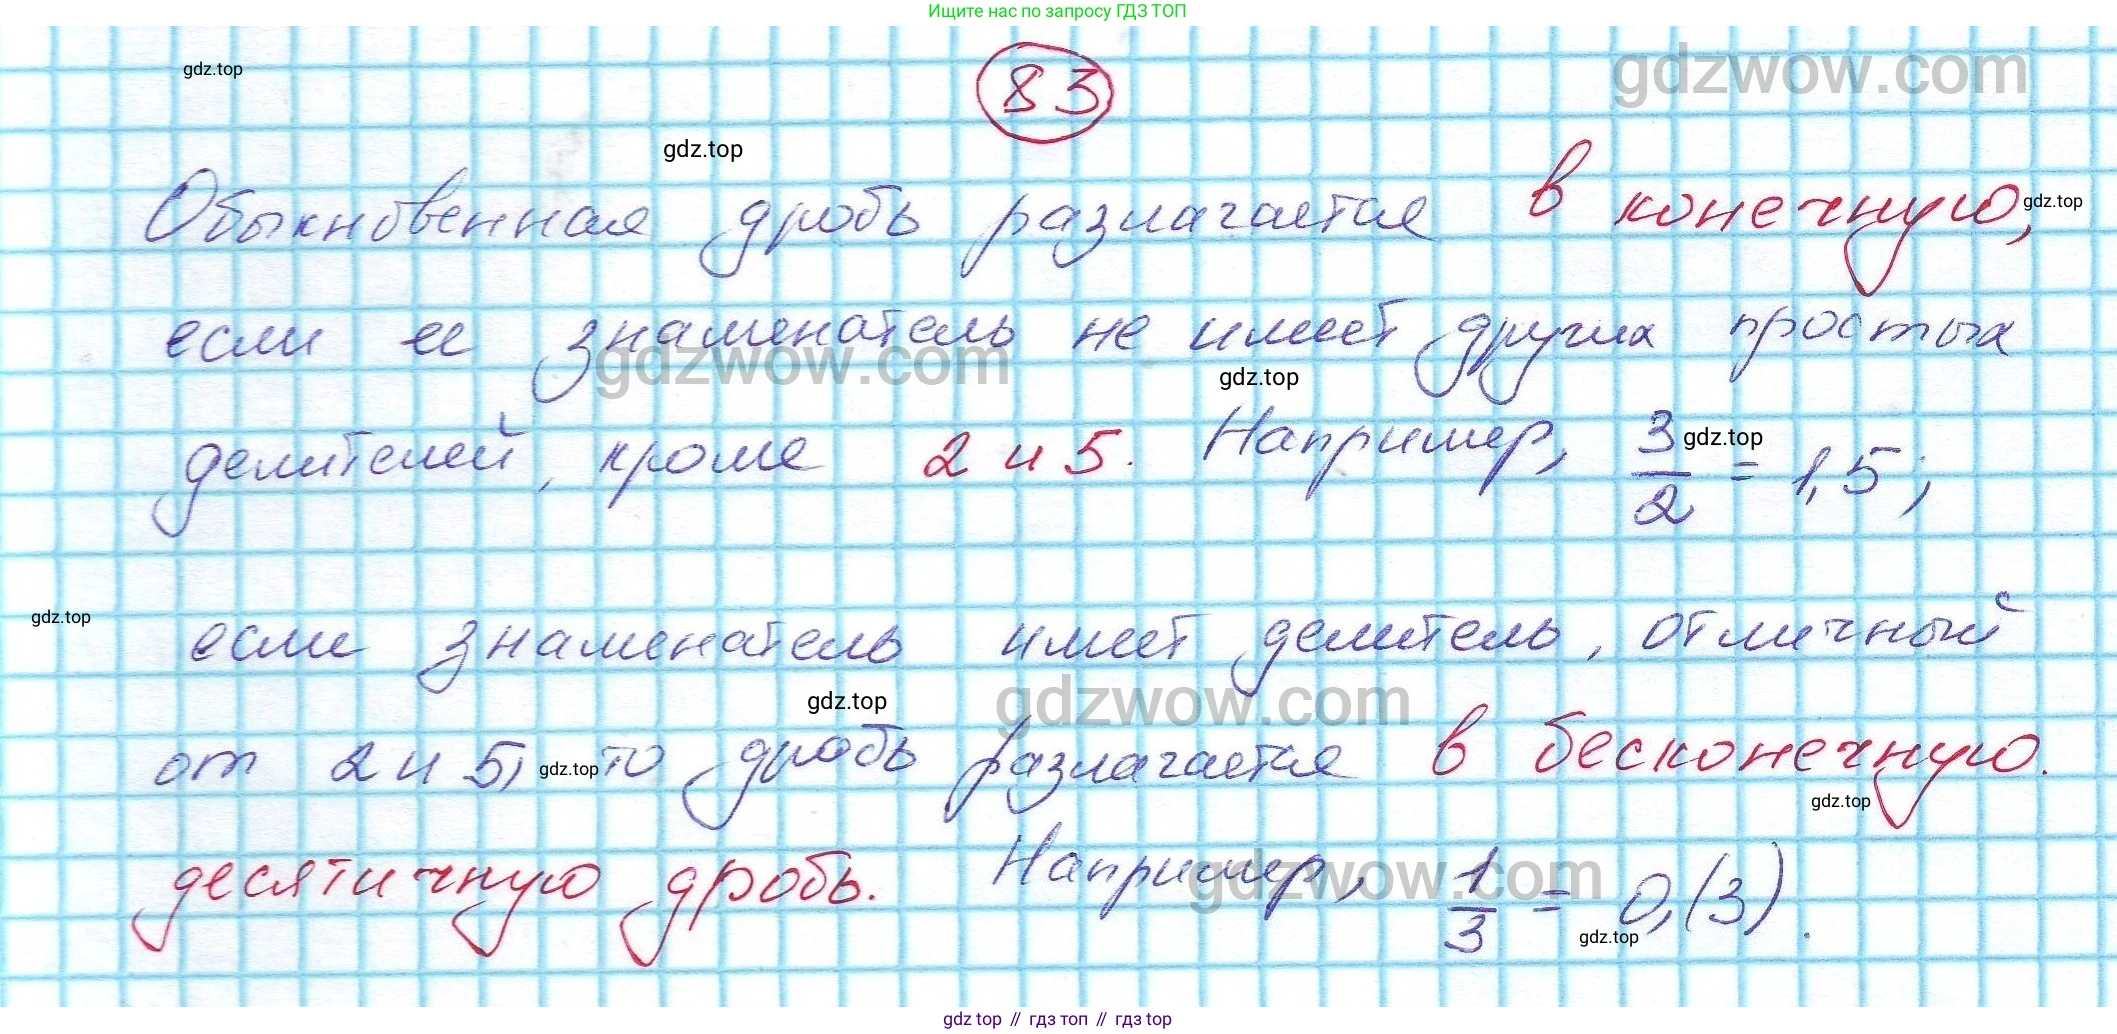 Ищите нас по запросу ГДЗ ТОП
gdz.top
83
gdzwow.com
gdz.top
Обыкновенная дробь разлагается в конечную,
gdz.top
если ее знаменатель не имеет других простых
gdzwow.com
gdz.top
делителей, кроме 2 и 5. Например, 3/2 = 1,5;
gdz.top
gdz.top
если знаменатель имеет делитель, отличный
gdz.top
gdzwow.com
от 2 и 5, то дробь разлагается в бесконечную.
gdz.top
gdz.top
десятичную дробь. Например, 1/3 = 0,(3).
gdzwow.com
gdz.top
gdz top // гдз топ // гдз top